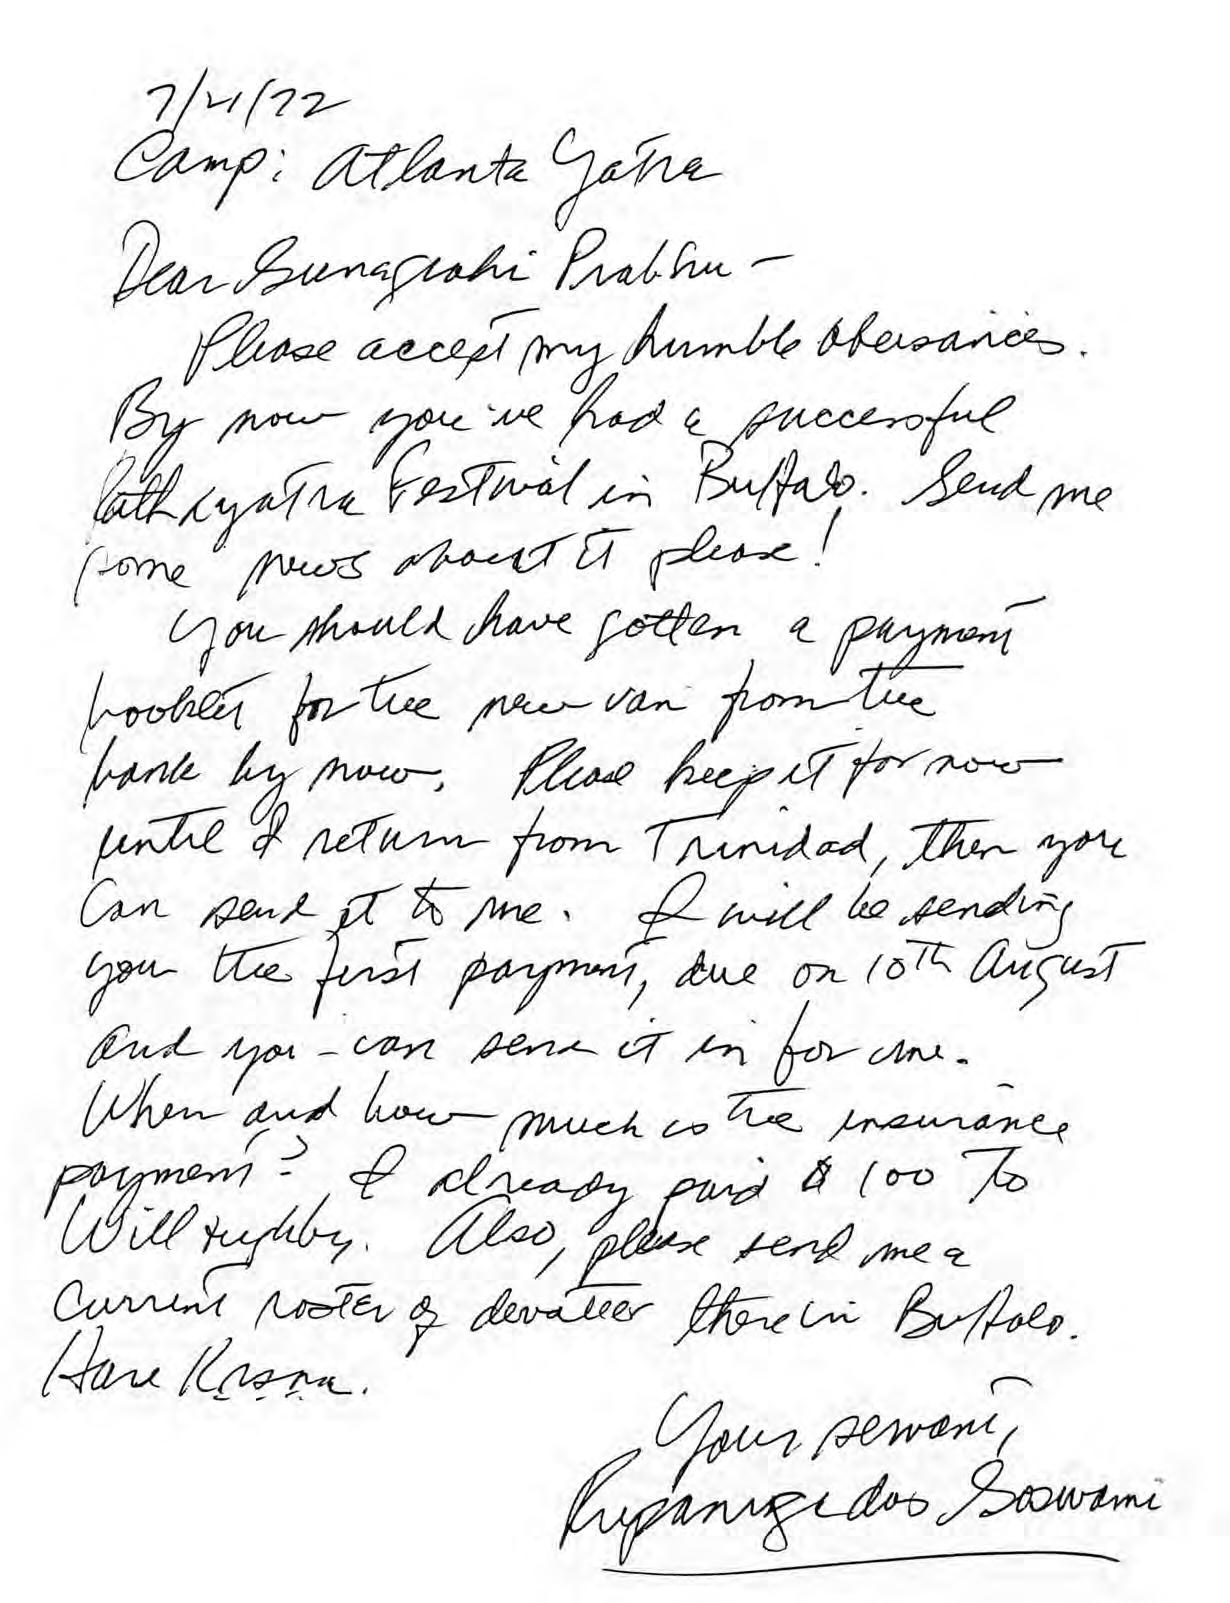 7/21/72
Camp: Atlanta Yatra
Dear Gunagrahi Prabhu -
Please accept my humble obeisances.
By now you've had a successful
Rathayatra Festival in Buffalo. Send me
some news about it please!
You should have gotten a payment
booklet for the new van from the
bank by now. Please keep it for now
until I return from Trinidad, then you
can send it to me. I will be sending
you the first payment, due on 10th August
and you can send it in for me.
When and how much is the insurance
payment? I already paid $100 to
Willoughby. Also, please send me a
current roster of devotees there in Buffalo.
Hare Krsna.
Your servant,
Rupanuga das Goswami